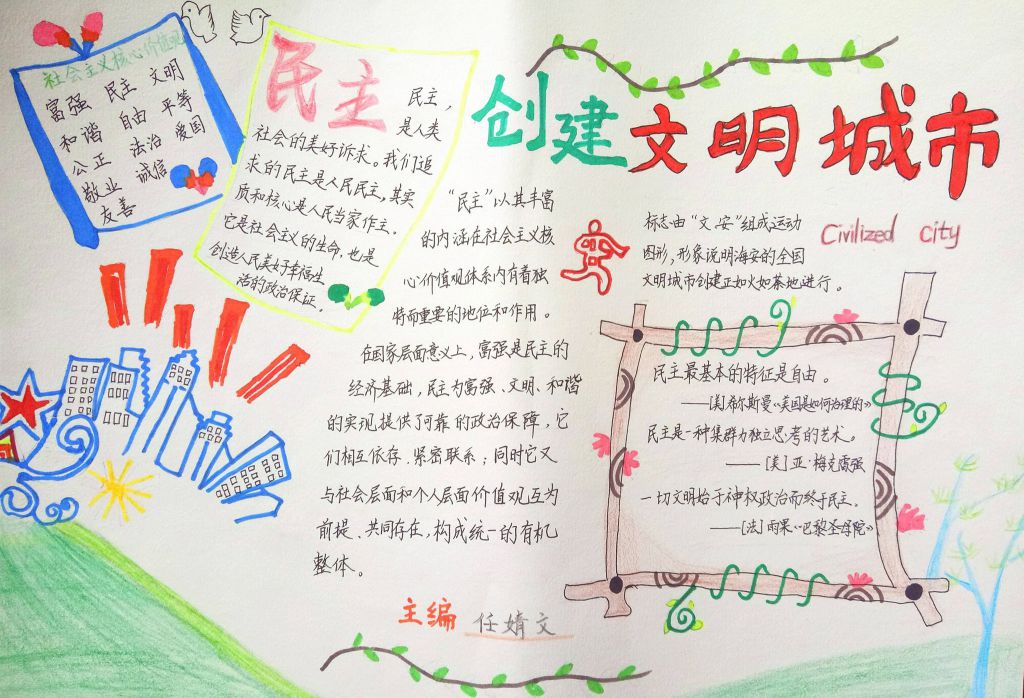 社会主义核心价值观
富强 民主 文明
和谐 自由 平等
公正 法治 爱国
敬业 诚信
友善
民主
民主，
是人类
社会的美好诉求。我们追
求的民主是人民民主，其实
质和核心是人民当家作主。
它是社会主义的生命，也是
创造人民美好幸福生
活的政治保证。
创建文明城市
Civilized city
标志由“文、安”组成运动
图形，形象说明海安的全国
文明城市创建正如火如荼地进行。
“民主”以其丰富
的内涵在社会主义核
心价值观体系内有着独
特而重要的地位和作用。
在国家层面意义上，富强是民主的
经济基础，民主为富强、文明、和谐
的实现提供了可靠的政治保障，它
们相互依存、紧密联系；同时它又
与社会层面和个人层面价值观互为
前提、共同存在，构成统一的有机
整体。
民主最基本的特征是自由。
——[美]希尔斯曼《美国是如何治理的》
民主是一种集群力独立思考的艺术。
——[美]亚·梅克雷强
一切文明始于神权政治而终于民主。
——[法]雨果《巴黎圣母院》
主编 任婧文